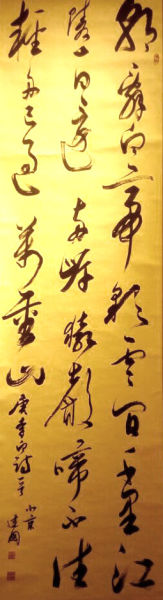 朝辞白帝彩雲間千里江
陵一日還兩岸猿聲啼不住
輕舟已過萬重山
唐李白詩一首
建國